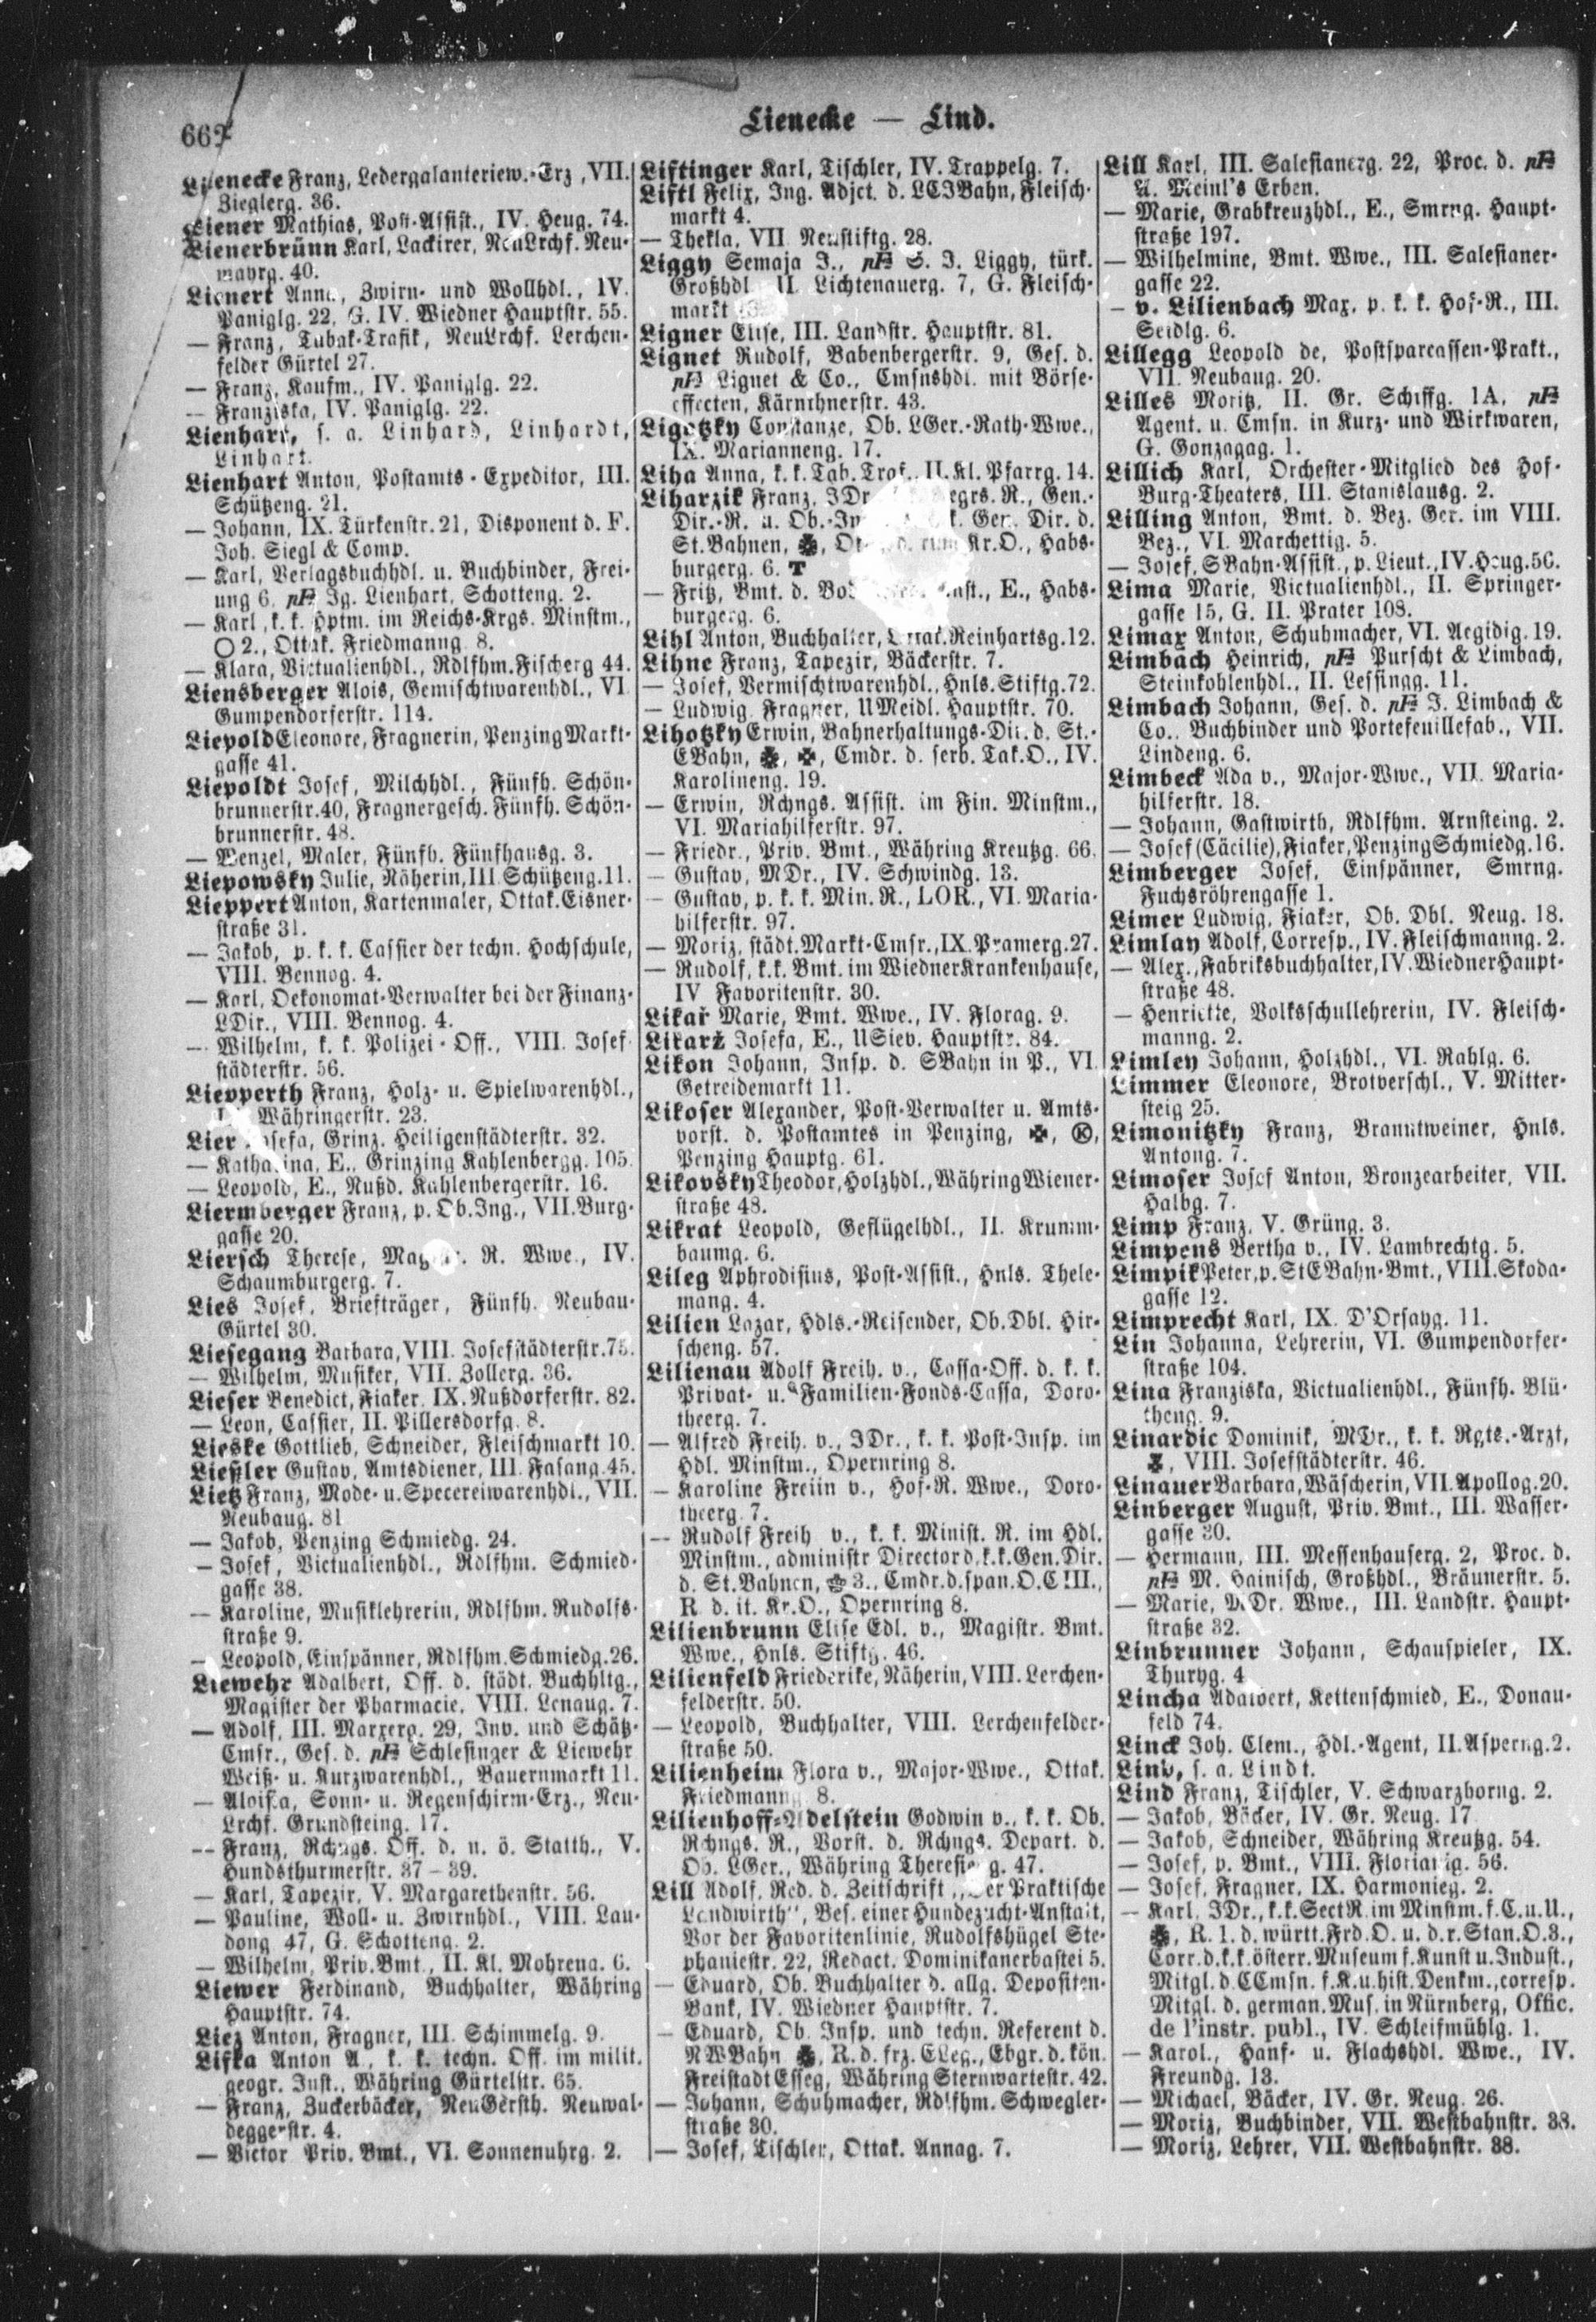 662
Lienecke — Lind.
Lienecke Franz, Ledergalanteriew.-Erz, VII.
Zieglerg. 36.
Liener Mathias, Post-Assist., IV. Heug. 74.
Lienerbrünn Karl, Lackirer, NeuLrchf. Neu-
mayrg. 40.
Lienert Anna, Zwirn- und Wollhdl., IV.
Paniglg. 22, G. IV. Wiedner Hauptstr. 55.
— Franz, Tabak-Trafik, NeuLrchf. Lerchen-
felder Gürtel 27.
— Franz, Kaufm., IV. Paniglg. 22.
— Franziska, IV. Paniglg. 22.
Lienhart, s. a. Linhard, Linhardt,
Linhart.
Lienhart Anton, Postamts-Expeditor, III.
Schützeng. 21.
— Johann, IX. Türkenstr. 21, Disponent d. F.
Joh. Siegl & Comp.
— Karl, Verlagsbuchhdl. u. Buchbinder, Frei-
ung 6, pF Ig. Lienhart, Schotteng. 2.
— Karl, k. k. Hptm. im Reichs-Krgs. Minstm.,
O 2., Ottak. Friedmanng. 8.
— Klara, Victualienhdl., Rdlfhm. Fischerg 44.
Liensberger Alois, Gemischtwarenhdl., VI
Gumpendorferstr. 114.
Liepold Eleonore, Fragnerin, Penzing Markt-
gasse 41.
Liepoldt Josef, Milchhdl., Fünfh. Schön-
brunnerstr. 40, Fragnergesch. Fünfh. Schön-
brunnerstr. 48.
— Wenzel, Maler, Fünfh. Fünfhausg. 3.
Liepowsky Julie, Näherin, III Schützeng. 11.
Lieppert Anton, Kartenmaler, Ottak. Eisner-
straße 31.
— Jakob, p. k. k. Cassier der techn. Hochschule,
VIII. Bennog. 4.
— Karl, Oekonomat-Verwalter bei der Finanz-
LDir., VIII. Bennog. 4.
— Wilhelm, k. k. Polizei-Off., VIII. Josef-
städterstr. 56.
Liepperth Franz, Holz- u. Spielwarenhdl.,
Währingerstr. 23.
Lier Josefa, Grinz. Heiligenstädterstr. 32.
— Katharina, E., Grinzing Kahlenbergg. 105.
— Leopold, E., Nußd. Kahlenbergerstr. 16.
Liermberger Franz, p. Ob. Ing., VII. Burg-
gasse 20.
Liersch Therese, R. Wwe., IV.
Schaumburgerg. 7.
Lies Josef, Briefträger, Fünfh. Neubau-
Gürtel 30.
Liesegang Barbara, VIII. Josefstädterstr. 75.
— Wilhelm, Musiker, VII. Zollerg. 36.
Lieser Benedict, Fiaker, IX. Nußdorferstr. 82.
— Leon, Cassier, II. Pillersdorfg. 8.
Lieske Gottlieb, Schneider, Fleischmarkt 10.
Ließler Gustav, Amtsdiener, III. Fasang. 45.
Lietz Franz, Mode- u. Specereiwarenhdl., VII.
Neubaug. 81
— Jakob, Penzing Schmiedg. 24.
— Josef, Victualienhdl., Rdlfhm. Schmied-
gasse 38.
— Karoline, Musiklehrerin, Rdlfhm. Rudolfs-
straße 9.
— Leopold, Einspänner, Rdlfhm. Schmiedg. 26.
Liewehr Adalbert, Off. d. städt. Buchhltg.,
Magister der Pharmacie, VIII. Lenaug. 7.
— Adolf, III. Marxerg. 29, Inv. und Schätz-
Cmsr., Ges. d. pF Schlesinger & Liewehr
Weiß- u. Kurzwarenhdl., Bauernmarkt 11.
— Aloisia, Sonn- u. Regenschirm-Erz., Neu-
Lrchf. Grundsteing. 17.
— Franz, Rchngs. Off. d. n. ö. Statth., V.
Hundsthurmerstr. 37–39.
— Karl, Tapezir, V. Margarethenstr. 56.
— Pauline, Woll- u. Zwirnhdl., VIII. Lau-
dong 47, G. Schotteng. 2.
— Wilhelm, Priv. Bmt., II. Kl. Mohreng. 6.
Liewer Ferdinand, Buchhalter, Währing
Hauptstr. 74.
Liez Anton, Fragner, III. Schimmelg. 9.
Lifka Anton A., k. k. techn. Off. im milit.
geogr. Inst., Währing Gürtelstr. 65.
— Franz, Zuckerbäcker, NeuGersth. Neuwal-
deggerstr. 4.
— Victor Priv. Bmt., VI. Sonnenuhrg. 2.
Liftinger Karl, Tischler, IV. Trappelg. 7.
Liftl Felix, Ing. Adjct. d. LCJBahn, Fleisch-
markt 4.
— Thekla, VII Neustiftg. 28.
Liggy Semaja J., pF S. J. Liggy, türk.
Großhdl II. Lichtenauerg. 7, G. Fleisch-
markt
Ligner Elise, III. Landstr. Hauptstr. 81.
Lignet Rudolf, Babenbergerstr. 9, Ges. d.
pF Lignet & Co., Cmsnshdl. mit Börse-
effecten, Kärnthnerstr. 43.
Ligotzky Constanze, Ob. LGer.-Rath-Wwe.,
IX. Marianneng. 17.
Liha Anna, k. k. Tab. Traf., II. Kl. Pfarrg. 14.
Liharzik Franz, JDr Regrs. R., Gen.-
Dir.-R. u. Ob.-In k. Gen. Dir. d.
St. Bahnen, ✠, Kr.O., Habs-
burgerg. 6. T
— Fritz, Bmt. d. E., Habs-
burgerg. 6.
Lihl Anton, Buchhalter, Ottak. Reinhartsg. 12.
Lihne Franz, Tapezir, Bäckerstr. 7.
— Josef, Vermischtwarenhdl., Hnls. Stiftg. 72.
— Ludwig, Fragner, UMeidl. Hauptstr. 70.
Lihotzky Erwin, Bahnerhaltungs-Dir. d. St.-
EBahn, ✠, ✠, Cmdr. d. serb. Tak.O., IV.
Karolineng. 19.
— Erwin, Rchngs. Assist. im Fin. Minstm.,
VI. Mariahilferstr. 97.
— Friedr., Priv. Bmt., Währing Kreutzg. 66.
— Gustav, MDr., IV. Schwindg. 13.
— Gustav, p. k. k. Min. R., LOR., VI. Maria-
hilferstr. 97.
— Moriz, städt. Markt-Cmsr., IX. Pramerg. 27.
— Rudolf, k. k. Bmt. im Wiedner Krankenhause,
IV Favoritenstr. 30.
Likař Marie, Bmt. Wwe., IV. Florag. 9.
Likarž Josefa, E., USiev. Hauptstr. 84.
Likon Johann, Insp. d. SBahn in P., VI.
Getreidemarkt 11.
Likoser Alexander, Post-Verwalter u. Amts-
vorst. d. Postamtes in Penzing, ✠, Ⓚ,
Penzing Hauptg. 61.
Likovsky Theodor, Holzhdl., Währing Wiener-
straße 48.
Likrat Leopold, Geflügelhdl., II. Krumm-
baumg. 6.
Lileg Aphrodisius, Post-Assist., Hnls. Thele-
mang. 4.
Lilien Lazar, Hdls.-Reisender, Ob. Dbl. Hir-
scheng. 57.
Lilienau Adolf Freih. v., Cassa-Off. d. k. k.
Privat- u. Familien-Fonds-Cassa, Doro-
theerg. 7.
— Alfred Freih. v., JDr., k. k. Post-Insp. im
Hdl. Minstm., Opernring 8.
— Karoline Freiin v., Hof-R. Wwe., Doro-
theerg. 7.
— Rudolf Freih v., k. k. Minist. R. im Hdl.
Minstm., administr Director d. k. k. Gen. Dir.
d. St. Bahnen, 3., Cmdr. d. span. O. C III.,
R. d. it. Kr.O., Opernring 8.
Lilienbrunn Elise Edl. v., Magistr. Bmt.
Wwe., Hnls. Stiftg. 46.
Lilienfeld Friederike, Näherin, VIII. Lerchen-
felderstr. 50.
— Leopold, Buchhalter, VIII. Lerchenfelder-
straße 50.
Lilienheim Flora v., Major-Wwe., Ottak.
Friedmanng 8.
Lilienhoff-Adelstein Godwin v., k. k. Ob.
Rchngs. R., Vorst. d. Rchngs. Depart. d.
Ob. LGer., Währing g. 47.
Lill Adolf, Red. d. Zeitschrift „Der Praktische
Landwirth“, Bes. einer Hundezucht-Anstalt,
Vor der Favoritenlinie, Rudolfshügel Ste-
phaniestr. 22, Redact. Dominikanerbastei 5.
— Eduard, Ob. Buchhalter d. allg. Depositen-
Bank, IV. Wiedner Hauptstr. 7.
— Eduard, Ob. Insp. und techn. Referent d.
NWBahn ✠, R. d. frz. ELeg., Ebgr. d. kön.
Freistadt Esseg, Währing Sternwartestr. 42.
— Johann, Schuhmacher, Rdlfhm. Schwegler-
straße 30.
— Josef, Tischler, Ottak. Annag. 7.
Lill Karl, III. Salesianerg. 22, Proc. d. pF
A. Meinl's Erben.
— Marie, Grabkreuzhdl., E., Smrng. Haupt-
straße 197.
— Wilhelmine, Bmt. Wwe., III. Salesianer-
gasse 22.
— v. Lilienbach Max, p. k. k. Hof-R., III.
Seidlg. 6.
Lillegg Leopold de, Postsparcassen-Prakt.,
VII. Neubaug. 20.
Lilles Moritz, II. Gr. Schiffg. 1A, pF
Agent. u. Cmsn. in Kurz- und Wirkwaren,
G. Gonzagag. 1.
Lillich Karl, Orchester-Mitglied des Hof-
Burg-Theaters, III. Stanislausg. 2.
Lilling Anton, Bmt. d. Bez. Ger. im VIII.
Bez., VI. Marchettig. 5.
— Josef, SBahn-Assist., p. Lieut., IV. Heug. 56.
Lima Marie, Victualienhdl., II. Springer-
gasse 15, G. II. Prater 108.
Limax Anton, Schuhmacher, VI. Aegidig. 19.
Limbach Heinrich, pF Purscht & Limbach,
Steinkohlenhdl., II. Lessingg. 11.
Limbach Johann, Ges. d. pF J. Limbach &
Co., Buchbinder und Portefeuillefab., VII.
Lindeng. 6.
Limbeck Ada v., Major-Wwe., VII. Maria-
hilferstr. 18.
— Johann, Gastwirth, Rdlfhm. Arnsteing. 2.
— Josef (Cäcilie), Fiaker, Penzing Schmiedg. 16.
Limberger Josef, Einspänner, Smrng.
Fuchsröhrengasse 1.
Limer Ludwig, Fiaker, Ob. Dbl. Neug. 18.
Limlay Adolf, Corresp., IV. Fleischmanng. 2.
— Alex., Fabriksbuchhalter, IV. Wiedner Haupt-
straße 48.
— Henriette, Volksschullehrerin, IV. Fleisch-
manng. 2.
Limley Johann, Holzhdl., VI. Rahlg. 6.
Limmer Eleonore, Brotverschl., V. Mitter-
steig 25.
Limonitzky Franz, Branntweiner, Hnls.
Antong. 7.
Limoser Josef Anton, Bronzearbeiter, VII.
Halbg. 7.
Limp Franz, V. Grüng. 3.
Limpens Bertha v., IV. Lambrechtg. 5.
Limpik Peter, p. StEBahn-Bmt., VIII. Skoda-
gasse 12.
Limprecht Karl, IX. D'Orsayg. 11.
Lin Johanna, Lehrerin, VI. Gumpendorfer-
straße 104.
Lina Franziska, Victualienhdl., Fünfh. Blü-
theng. 9.
Linardic Dominik, MDr., k. k. Rgts.-Arzt,
VIII. Josefstädterstr. 46.
Linauer Barbara, Wäscherin, VII. Apollog. 20.
Linberger August, Priv. Bmt., III. Wasser-
gasse 30.
— Hermann, III. Messenhauserg. 2, Proc. d.
pF M. Hainisch, Großhdl., Bräunerstr. 5.
— Marie, MDr. Wwe., III. Landstr. Haupt-
straße 32.
Linbrunner Johann, Schauspieler, IX.
Thuryg. 4
Lincha Adalbert, Kettenschmied, E., Donau-
feld 74.
Linck Joh. Clem., Hdl.-Agent, II. Asperng. 2.
Lind, s. a. Lindt.
Lind Franz, Tischler, V. Schwarzhorng. 2.
— Jakob, Bäcker, IV. Gr. Neug. 17
— Jakob, Schneider, Währing Kreutzg. 54.
— Josef, p. Bmt., VIII. Florianig. 56.
— Josef, Fragner, IX. Harmonieg. 2.
— Karl, JDr., k. k. SectR. im Minstm. f. C. u. U.,
✠, R. 1. d. württ. Frd.O. u. d. r. Stan.O. 3.,
Corr. d. k. k. österr. Museum f. Kunst u. Indust.,
Mitgl. d. CCmsn. f. K. u. hist. Denkm., corresp.
Mitgl. d. german. Mus. in Nürnberg, Offic.
de l'instr. publ., IV. Schleifmühlg. 1.
— Karol., Hanf- u. Flachshdl. Wwe., IV.
Freundg. 13.
— Michael, Bäcker, IV. Gr. Neug. 26.
— Moriz, Buchbinder, VII. Westbahnstr. 38.
— Moriz, Lehrer, VII. Westbahnstr. 38.